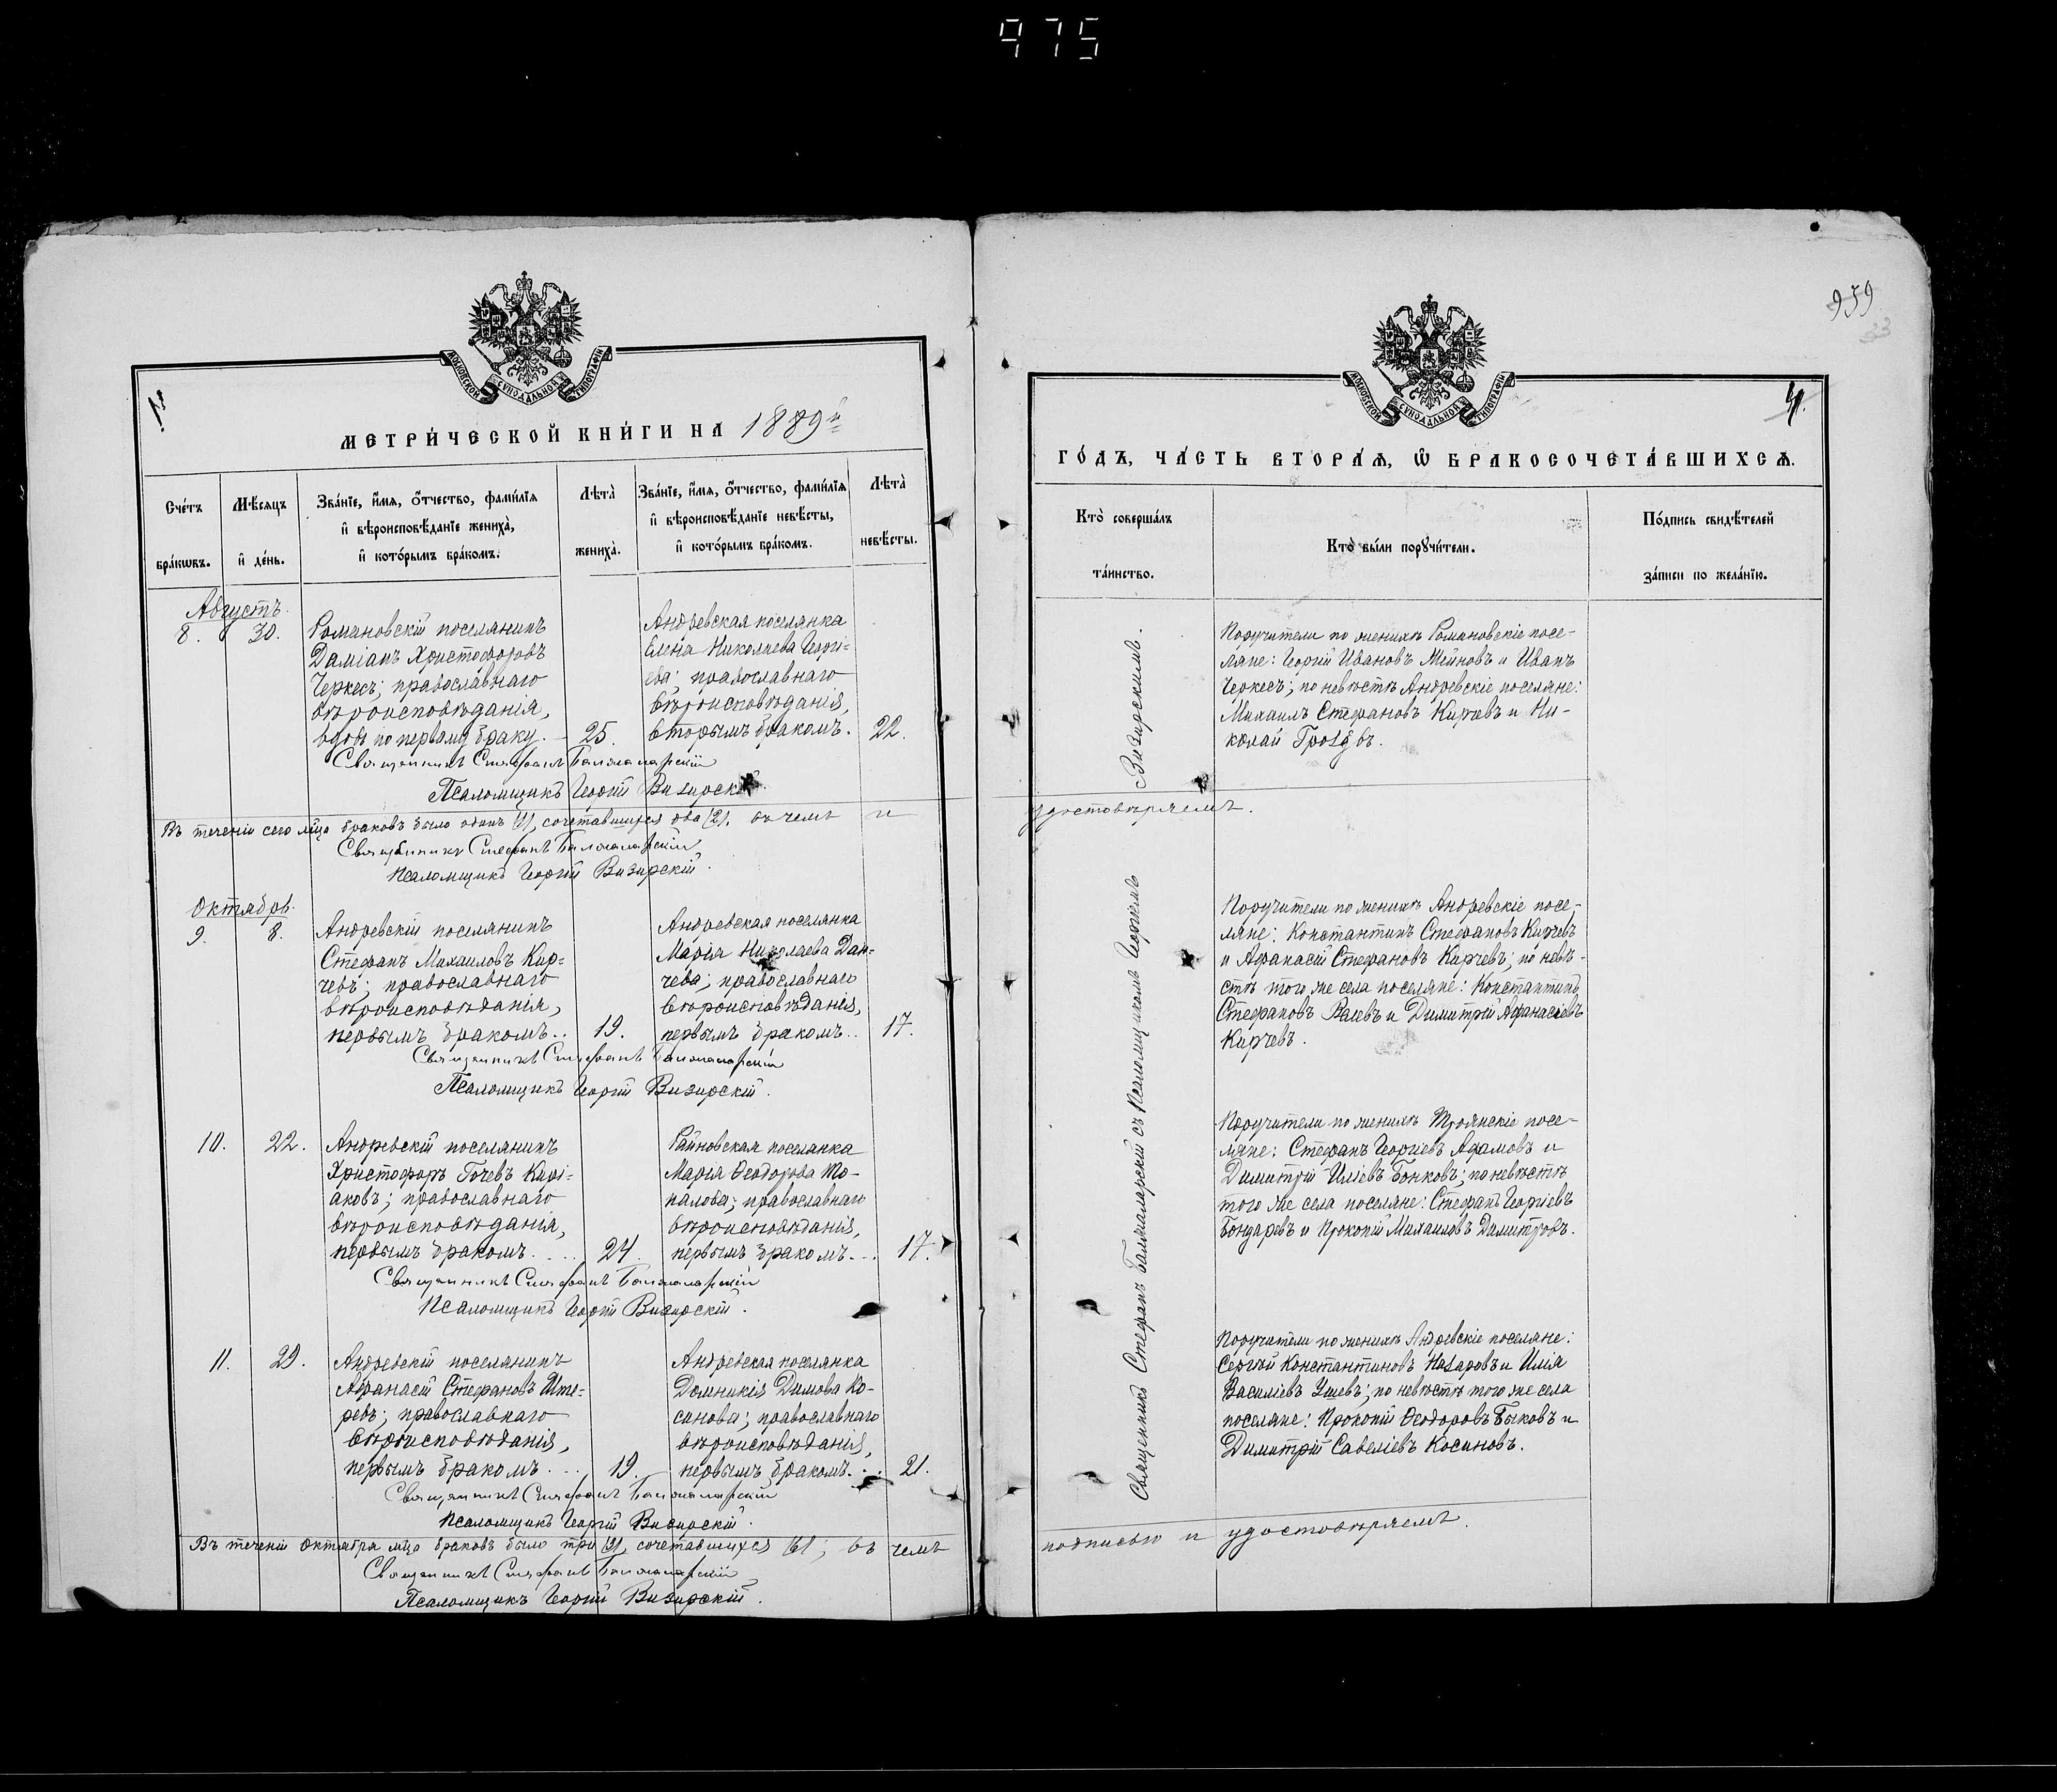 975
959
33
МОСКОВСКОЙ СѴНОДАЛЬНОЙ ТИПОГРАФІИ
МЕТРИ́ЧЕСКОЙ КНИ́ГИ НА 1889й
Сче́тъ бра́кѡвъ.
Мѣ́сяцъ и҆ де́нь.
Зва́нїе, и҆́мя, ѻ҆́тчество, фами́лїя
и҆ вѣроисповѣ́данїе жениха̀,
и҆ кото́рымъ бра́комъ.
Лѣта̀ жениха̀.
Зва́нїе, и҆́мя, ѻ҆́тчество, фами́лїя
и҆ вѣроисповѣ́данїе невѣ́сты,
и҆ кото́рымъ бра́комъ.
Лѣта̀ невѣ́сты.
Августъ.
8. 30.
Романовскій поселянинъ
Даміанъ Христофоровъ
Черкесъ; православнаго
вѣроисповѣданія,
вдовъ по первому браку. 25.
Андреевская поселянка
Елена Николаева Георгі-
ева; православнаго
вѣроисповѣданія,
вторымъ бракомъ. 22.
Священникъ Стефанъ Балжаларскій
Псаломщикъ Георгій Визирскій.
Въ теченіи сего мѣсяца браковъ было одинъ (1), сочетавшихся два (2). въ чемъ и
Священникъ Стефанъ Балжаларскій
Псаломщикъ Георгій Визирскій.
Октябрь.
9. 8.
Андреевскій поселянинъ
Стефанъ Михаиловъ Кир-
чевъ; православнаго
вѣроисповѣданія,
первымъ бракомъ. 19.
Андреевская поселянка
Марія Николаева Дан-
чева; православнаго
вѣроисповѣданія,
первымъ бракомъ. 17.
Священникъ Стефанъ Балжаларскій
Псаломщикъ Георгій Визирскій.
10. 22.
Андреевскій поселянинъ
Христофоръ Гочевъ Кирі-
аковъ; православнаго
вѣроисповѣданія,
первымъ бракомъ. 24.
Райновская поселянка
Марія Ѳеодорова То-
палова; православнаго
вѣроисповѣданія,
первымъ бракомъ. 17.
Священникъ Стефанъ Балжаларскій
Псаломщикъ Георгій Визирскій.
11. 29.
Андреевскій поселянинъ
Афанасій Стефановъ
православнаго
вѣроисповѣданія,
первымъ бракомъ. 19.
Андреевская поселянка
Домникія Димова Ко-
синова; православнаго
вѣроисповѣданія,
первымъ бракомъ. 21.
Священникъ Стефанъ Балжаларскій
Псаломщикъ Георгій Визирскій.
Въ теченіи Октября мѣсяца браковъ было три (3), сочетавшихся (6); въ чемъ
Священникъ Стефанъ Балжаларскій
Псаломщикъ Георгій Визирскій.
МОСКОВСКОЙ СѴНОДАЛЬНОЙ ТИПОГРАФІИ
ГО́ДЪ, ЧА́СТЬ ВТОРА́Ѧ, Ѡ҆ БРАКОСОЧЕТА́ВШИХСѦ.
Кто̀ соверша́лъ та́инство.
Кто̀ бы́ли порꙋчи́тели.
По́дпись свидѣ́телей за́писи по жела́нїю.
Поручители по женихѣ Романовскіе посе-
ляне: Георгій Ивановъ Мейновъ и Иванъ
Черкесъ; по невѣстѣ Андреевскіе поселяне:
Михаилъ Стефановъ Кирчевъ и Ни-
колай
удостовѣряемъ.
Поручители по женихѣ Андреевскіе посе-
ляне: Константинъ Стефановъ Кирчевъ
и Афанасій Стефановъ Кирчевъ; по невѣ-
стѣ того же села поселяне: Константинъ
Стефановъ Валевъ и Димитрій Афанасіевъ
Кирчевъ.
Поручители по женихѣ Троянскіе посе-
ляне: Стефанъ Георгіевъ Адамовъ и
Димитрій Иліевъ Бонковъ; по невѣстѣ
того же села поселяне: Стефанъ Георгіевъ
Бондаревъ и Прокопій Михаиловъ Димитровъ.
Поручители по женихѣ Андреевскіе поселяне:
Сергѣй Константиновъ Назаровъ и Илія
Василіевъ Ушевъ; по невѣстѣ того же села
поселяне: Прокопій Ѳеодоровъ Быковъ и
Димитрій Савеліевъ Косиновъ.
подписью и удостовѣряемъ.
Священникъ Стефанъ Балжаларскій съ Псаломщикомъ Георгіемъ Визирскимъ.